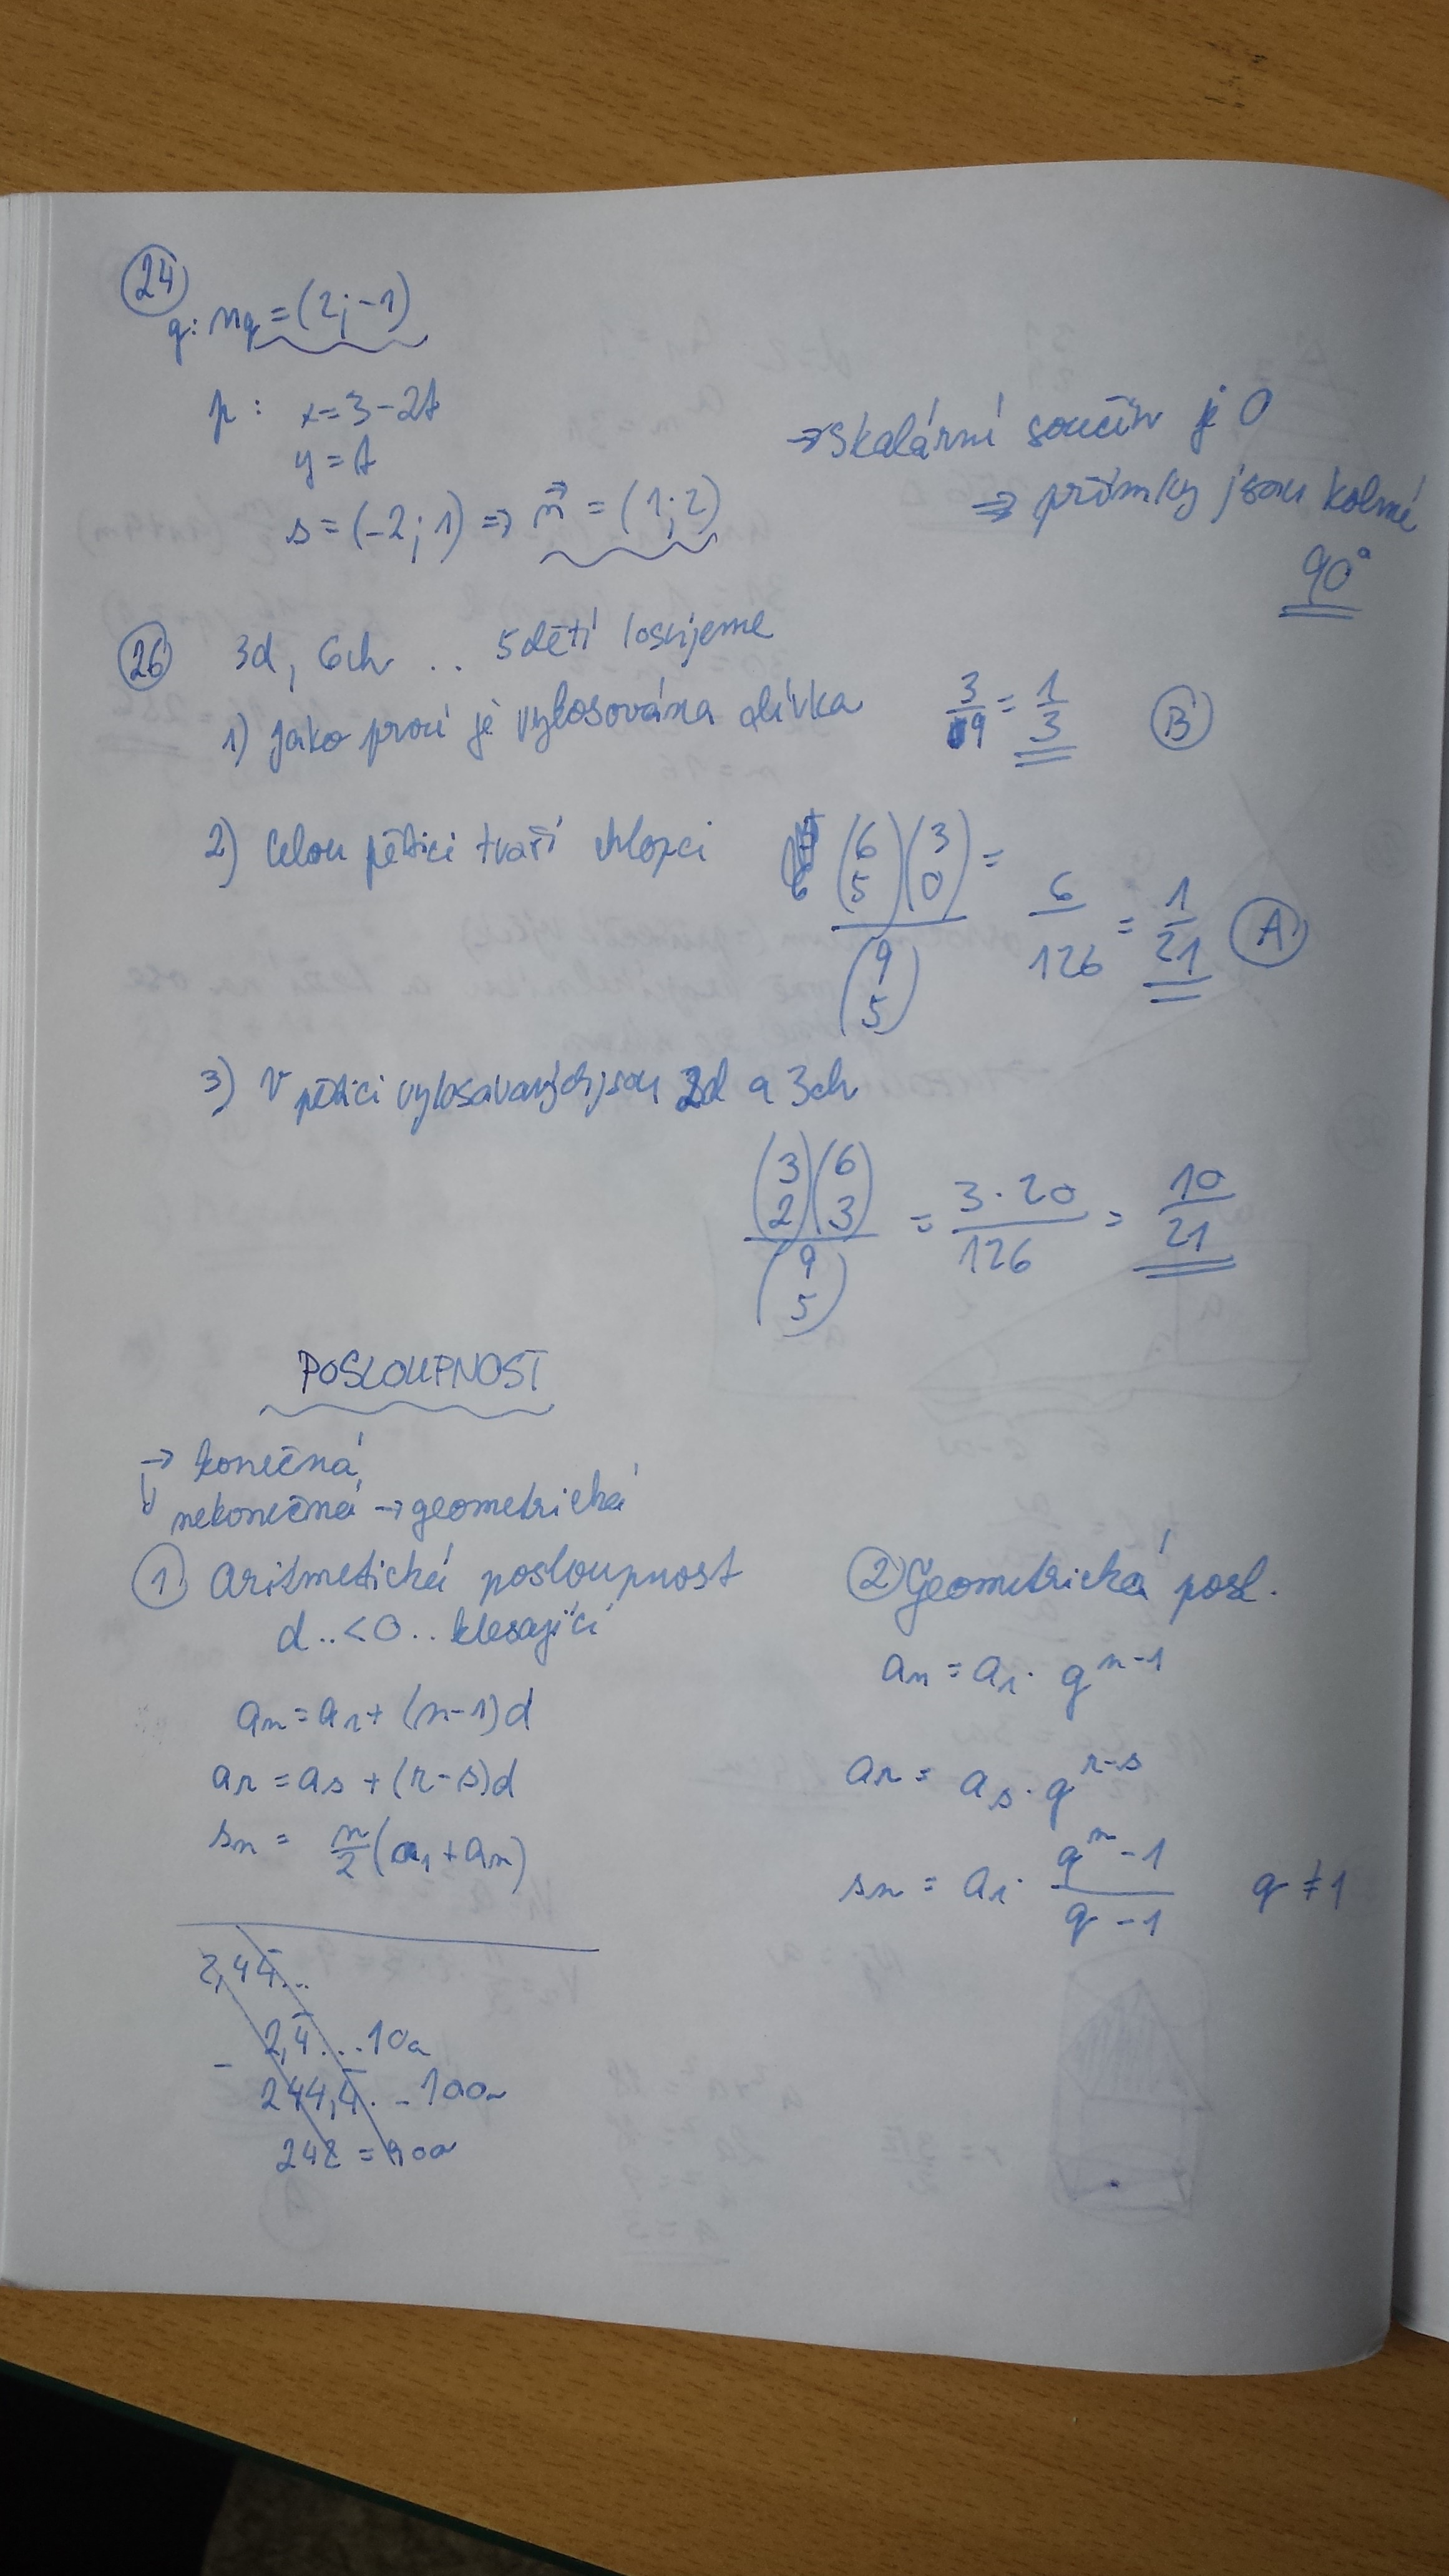 24
q: n_q = (2; -1)
p: x = 3 - 2t
y = t
s = (-2; 1) => n⃗ = (1; 2)
→ skalární součin je 0
=> přímky jsou kolmé
90°
26 3d, 6ch .. 5 dětí losujeme
1) Jako první je vylosována dívka 3/9 = 1/3 B
2) Celou pětici tvoří chlapci (6 5)(3 0) / (9 5) = 6/126 = 1/21 A
3) V pětici vylosovaných jsou 2d a 3ch
(3 2)(6 3) / (9 5) = 3·20/126 = 10/21
POSLOUPNOST
→ konečná
↳ nekonečná → geometrická
1 aritmetická posloupnost
d..<0.. klesající
a_n = a_1 + (n-1)d
a_r = a_s + (r-s)d
s_n = n/2 (a_1 + a_n)
2 Geometrická posl.
a_n = a_1 · q^(n-1)
a_r = a_s · q^(r-s)
s_n = a_1 · (q^n - 1)/(q - 1) q ≠ 1
2,44...
2,4...10a
- 244,4..-100a
242 = 90a